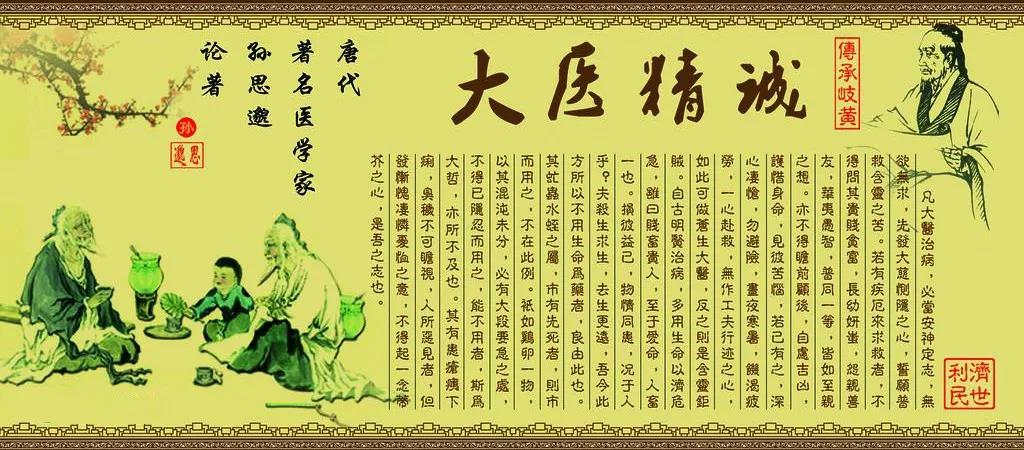 傳承岐黃
大医精诚
唐代
著名医学家
孙思邈
论著
孙
思邈
凡大醫治病，必當安神定志，無
欲無求，先發大慈惻隱之心，誓願普
救含靈之苦。若有疾厄來求救者，不
得問其貴賤貧富，長幼妍蚩，怨親善
友，華夷愚智，普同一等，皆如至親
之想。亦不得瞻前顧後，自慮吉凶，
護惜身命，見彼苦惱，若己有之，深
心凄愴，勿避險，晝夜寒暑，饑渴疲
勞，一心赴救，無作工夫行迹之心，
如此可做蒼生大醫，反之則是含靈鉅
賊。自古明賢治病，多用生命以濟危
急，雖曰賤畜貴人，至于愛命，人畜
一也。損彼益己，物情同患，况于人
乎？夫殺生求生，去生更遠，吾今此
方所以不用生命爲藥者，良由此也。
其虻蟲水蛭之屬，市有先死者，則市
而用之，不在此例。衹如鷄卵一物，
以其混沌未分，必有大段要急之處，
不得已隱忍而用之，能不用者，斯爲
大哲，亦所不及也。其有患瘡痍下
痢，臭穢不可瞻視，人所惡見者，但
發慚愧凄憐憂恤之意，不得起一念蒂
芥之心，是吾之志也。
濟世
利民